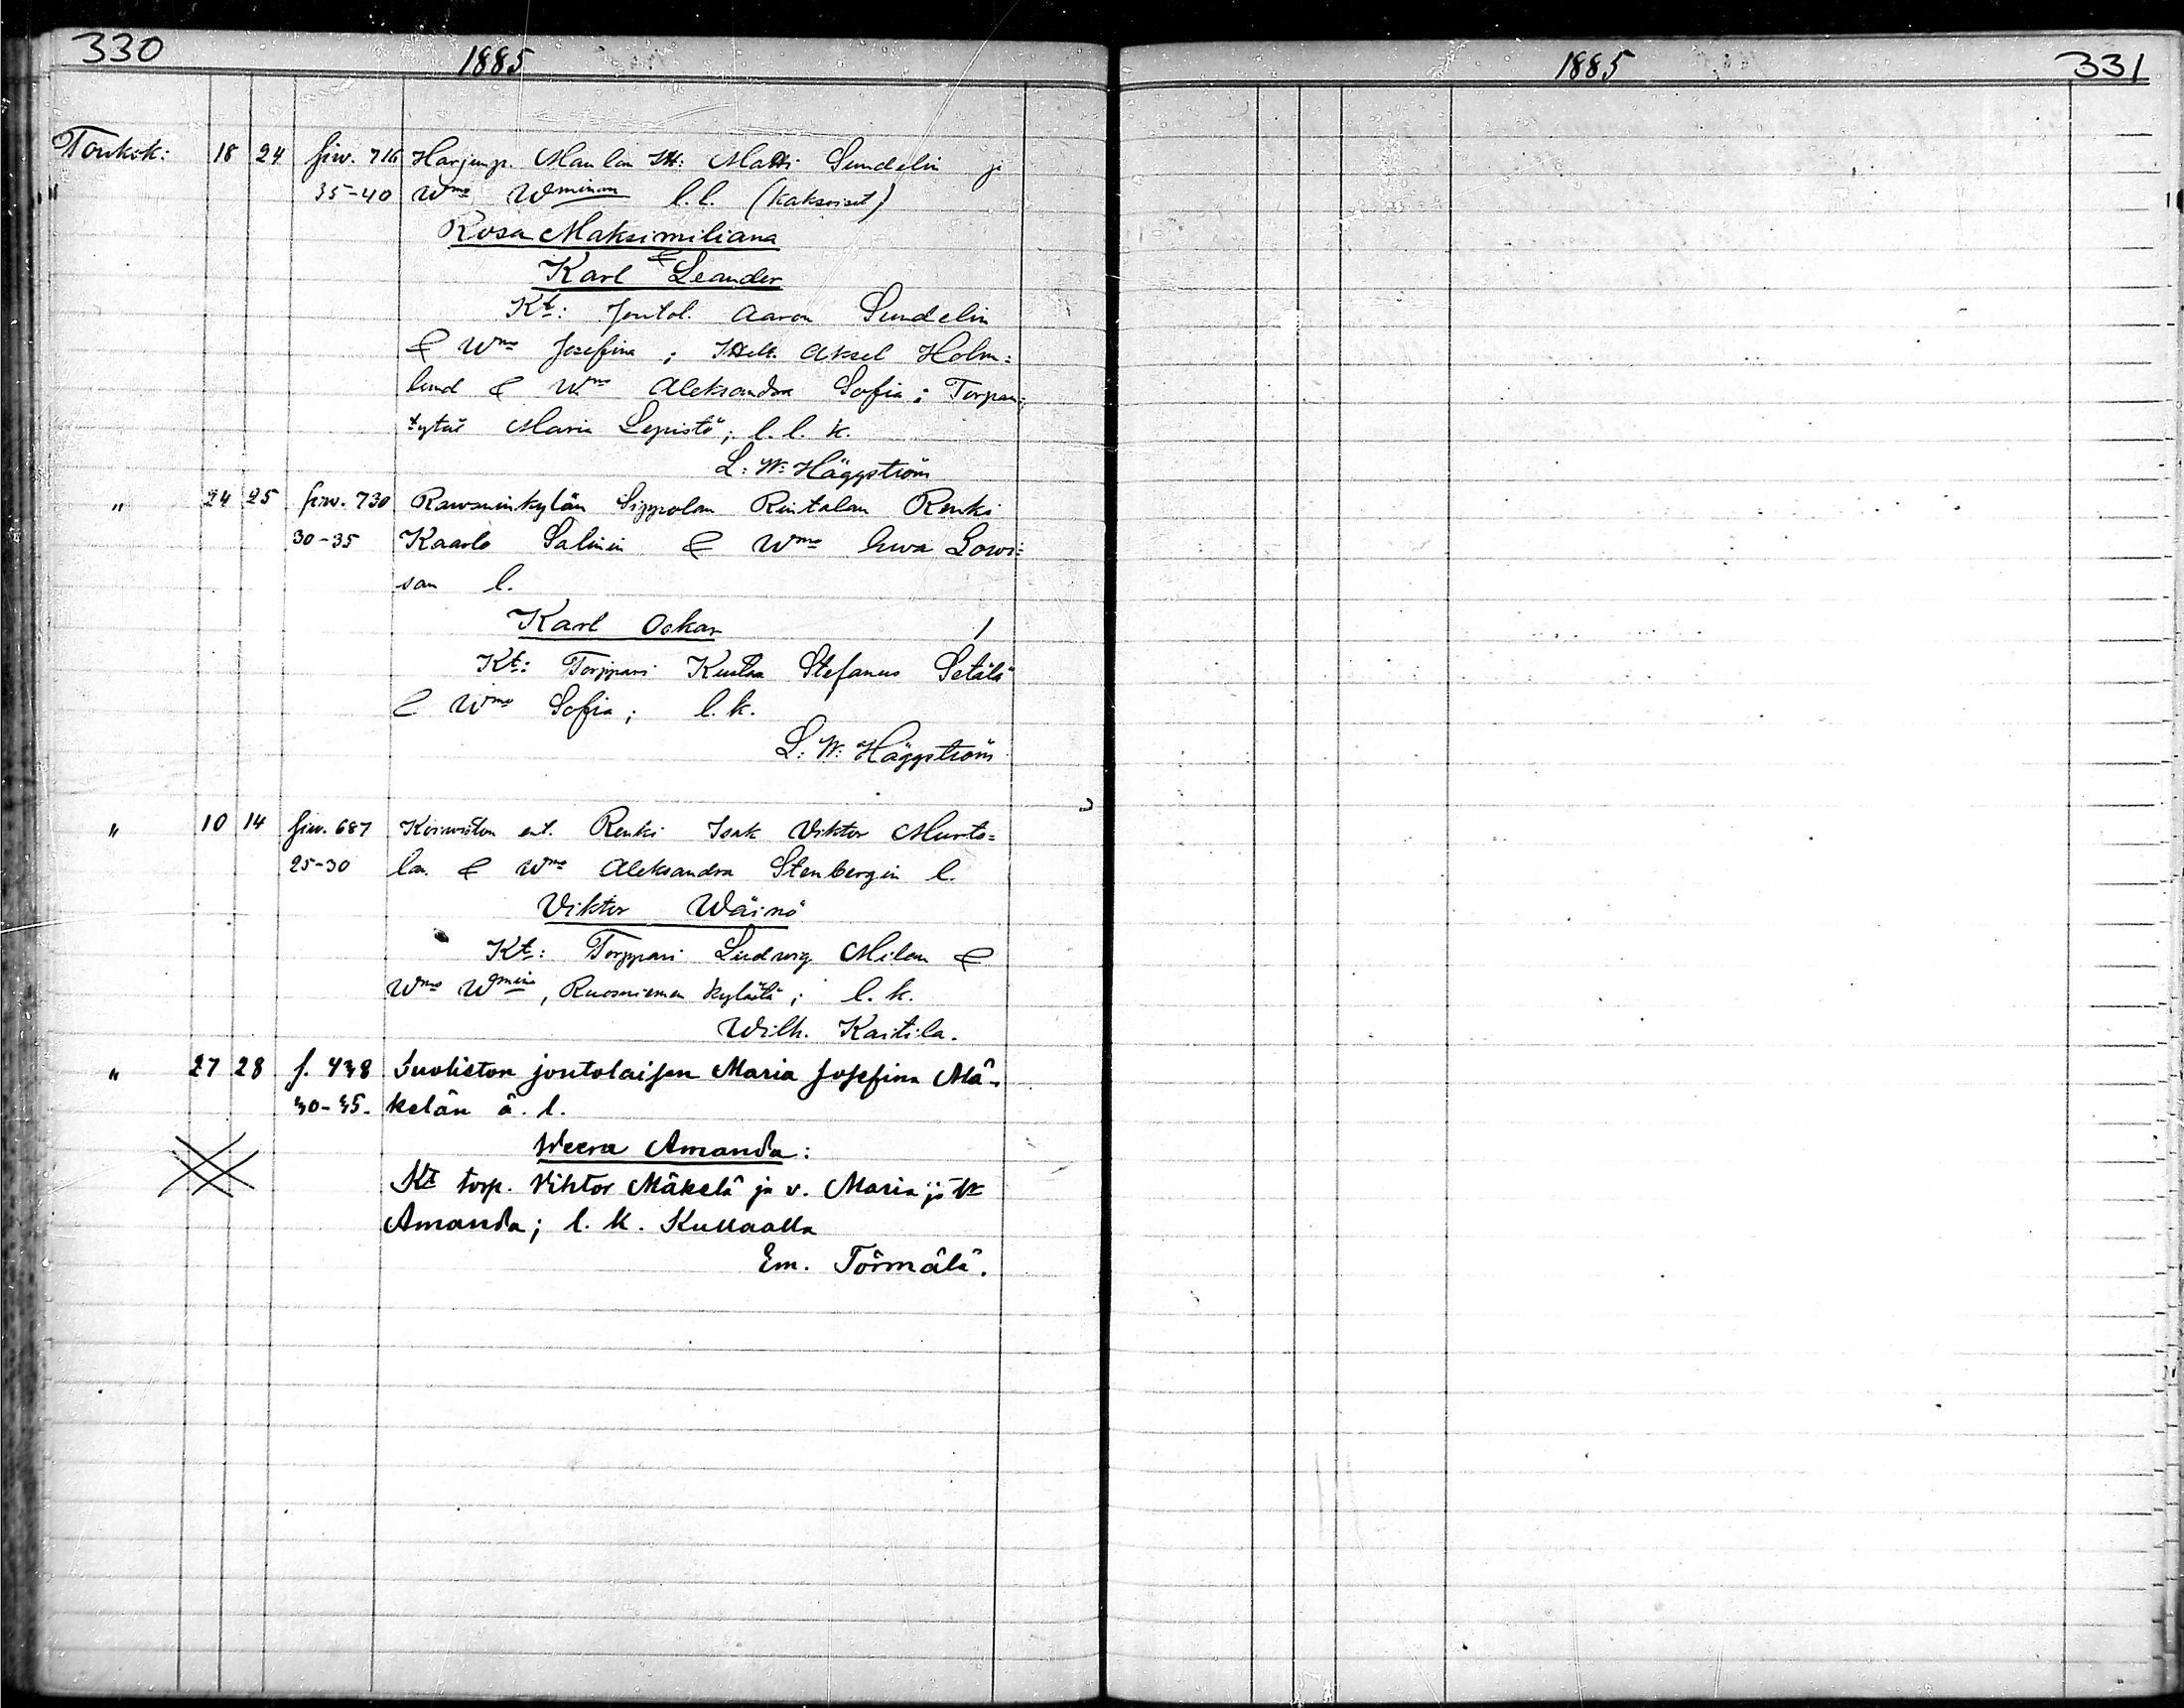 330 1885
Toukok: 18 24 siw. 716 Harjunp. Matti Sundelin ja
35-40 Wmo Wminan l.l. (kaksoiset)
Rosa Maksimiliana
& Karl Leander
Kt: Joutol. Aaron Sundelin
& Wmo Josefina; Aksel Holm=
lund & Wmo Aleksandra Sofia; Torpan=
tytär Maria Lepistö; l. l. k.
L: W: Häggström
" 24 25 siw. 730 Rawaninkylän Sippolan Rintalan Renki
30-35 Kaarlo Salinin & Wmo Ewa Lowi=
san l.
Karl Oskar /
Kt: Torppari Kustaa Stefanus Setälä
& Wmo Sofia; l. k.
L: W: Häggström
" 10 14 siw. 687 Koiwiston ent. Renki Isak Viktor Murto=
25-30 lan & Wmo Aleksandra Stenbergin l.
Viktor Wäinö
Kt: Torppari Ludwig Milan &
Wmo Wmina, Ruosniemen kylästä; l. k.
Wilh. Kaitila.
" 27 28 s. 438 Suoliston joutolaisen Maria Josefina Mä-
30-35. kelän ä. l.
Weera Amanda:
Kt torp. Viktor Mäkelä ja v. Maria ja
Amanda; l. k. Kullaalla
Em. Törmälä.
1885 331